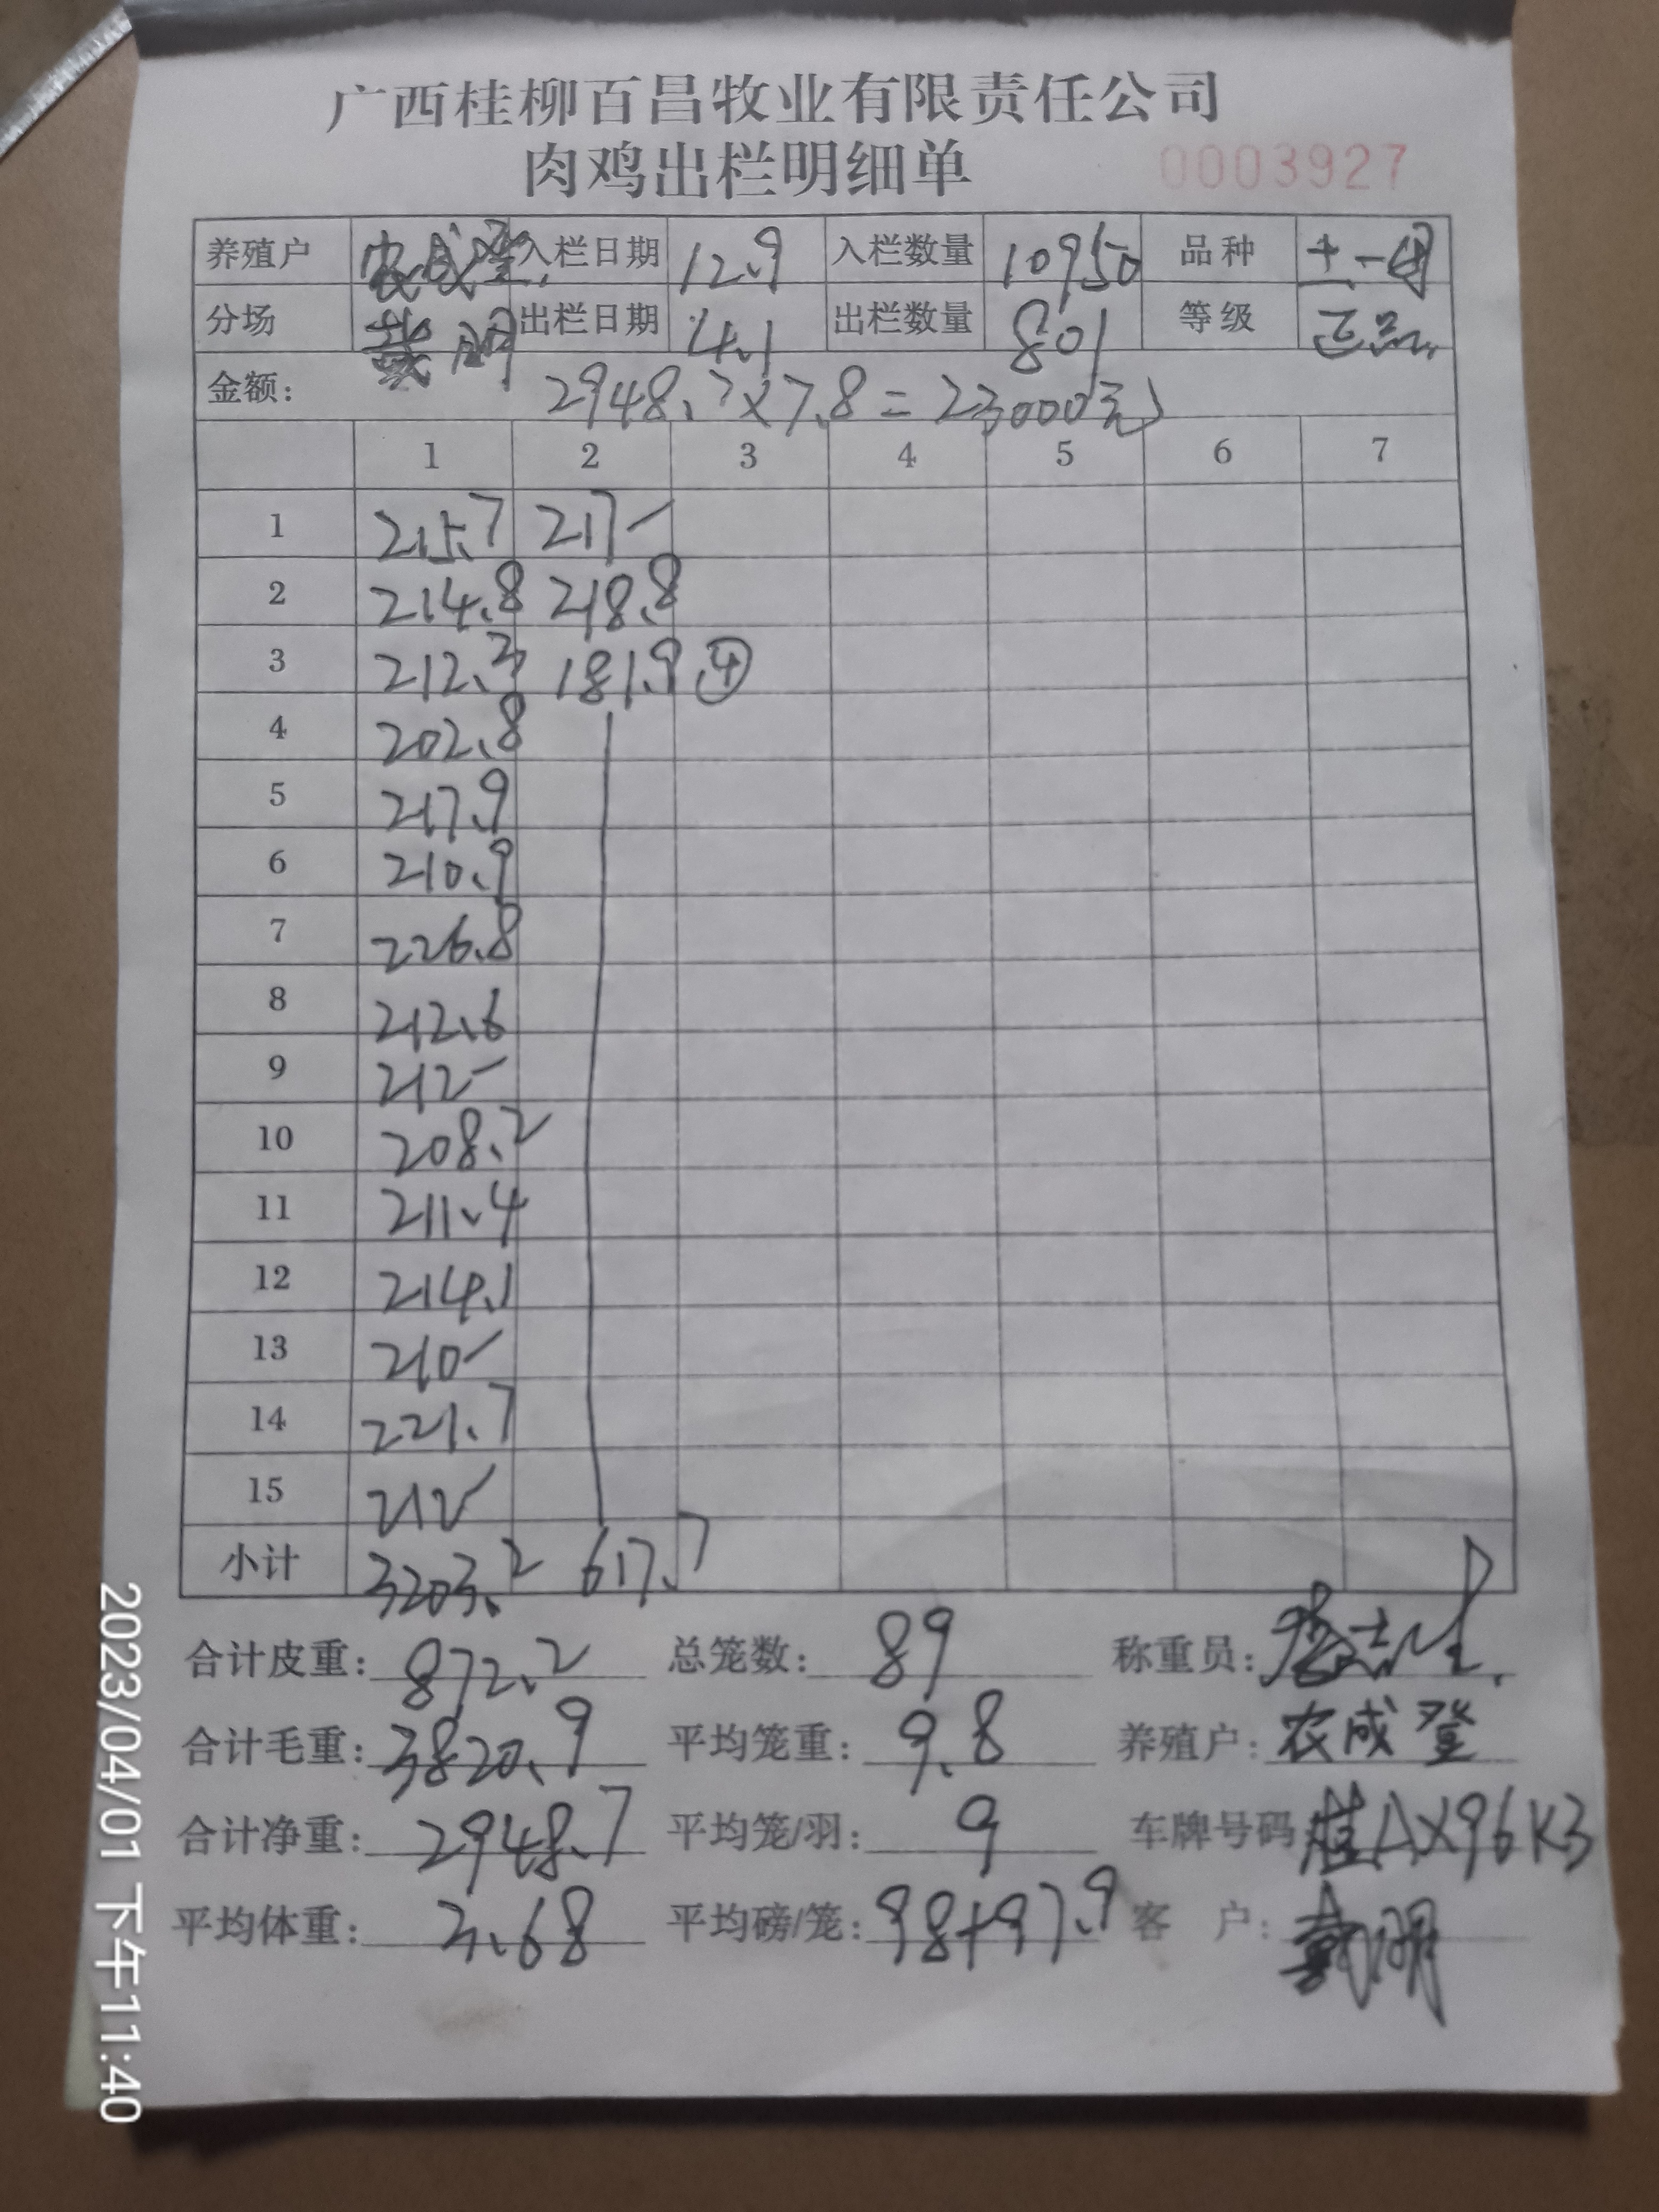 广西桂柳百昌牧业有限责任公司
肉鸡出栏明细单 0003927
养殖户 农成登 入栏日期 12.9 入栏数量 10950 品种 土一
分场 戴明 出栏日期 4.1 出栏数量 801 等级 正品
金额: 2948.7×7.8=23000元
1 2 3 4 5 6 7
1 215.7 217-
2 214.8 218.8
3 212.3 181.9 ④
4 202.8
5 217.9
6 210.9
7 226.8
8 212.6
9 212-
10 208.2
11 211.4
12 214.1
13 210-
14 221.7
15 212-
小计 3203.2 617.7
合计皮重: 872.2 总笼数: 89 称重员:
合计毛重: 3820.9 平均笼重: 9.8 养殖户: 农成登
合计净重: 2948.7 平均笼/羽: 9 车牌号码 桂AX96K3
平均体重: 3.68 平均磅/笼: 98+97.9 客 户: 戴明
2023/04/01 下午11:40